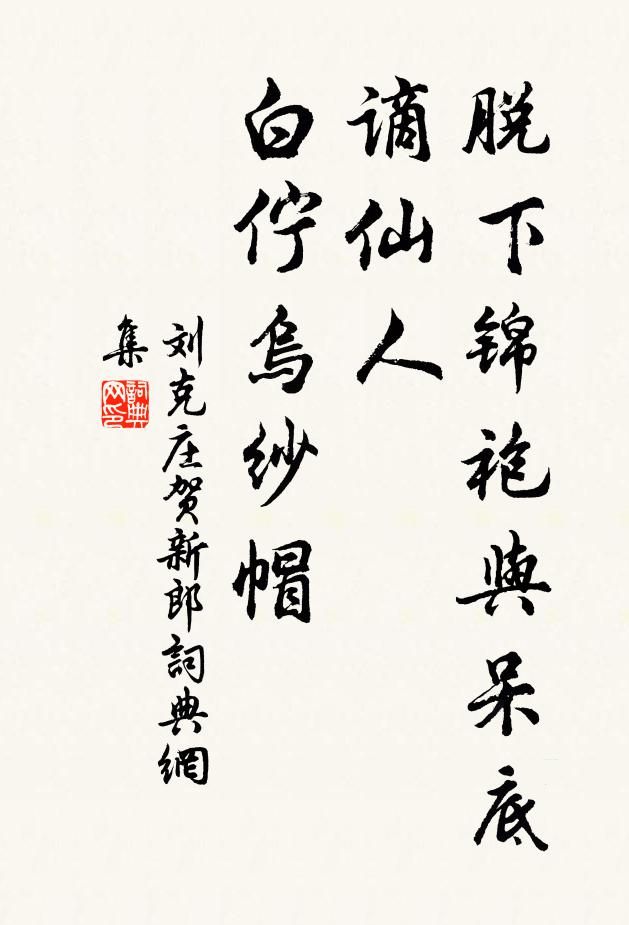 脱下锦袍與呆底
谪仙人
白佇烏纱帽
刘克庄贺新郎詞典網
集
詞典网印